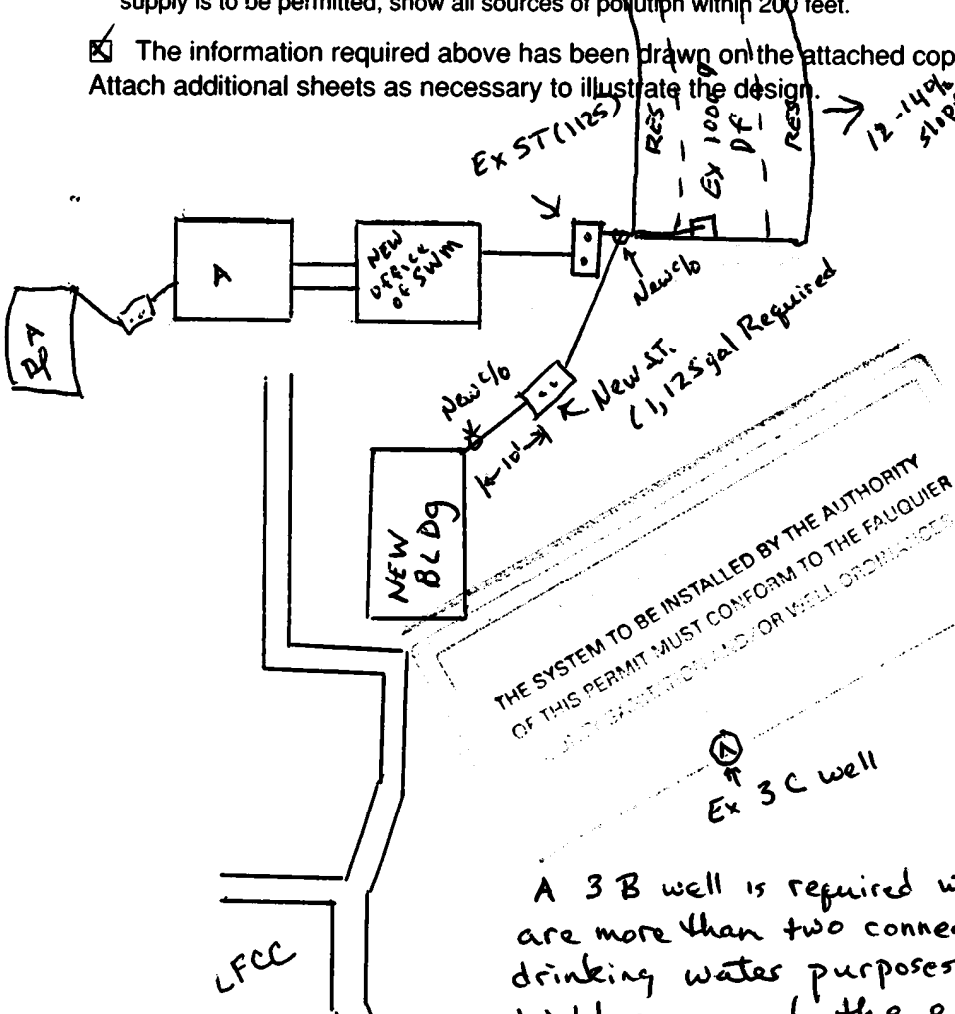 supply is to be permitted, show all sources of pollution within 200 feet.
The information required above has been drawn on the attached cop
Attach additional sheets as necessary to illustrate the design.
Ex ST (1125)
RES
EX 1000
Df
RES
12-14%
slop
A
NEW
OFFICE
OF SWM
New c/o
A
Df
New c/o
New S.T.
(1,125gal Required
10'
NEW
BLDg
THE SYSTEM TO BE INSTALLED BY THE AUTHORITY
OF THIS PERMIT MUST CONFORM TO THE FAUQUIER
AND/OR WELL ORDINANCES
Ex 3 C well
LFCC
A 3 B well is required
are more than two connec
drinking water purposes